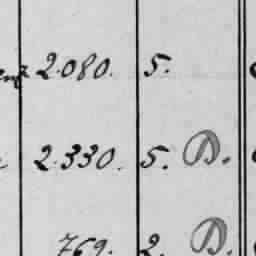 2.080. 5.
2.330. 5. D.
769. 2. D.